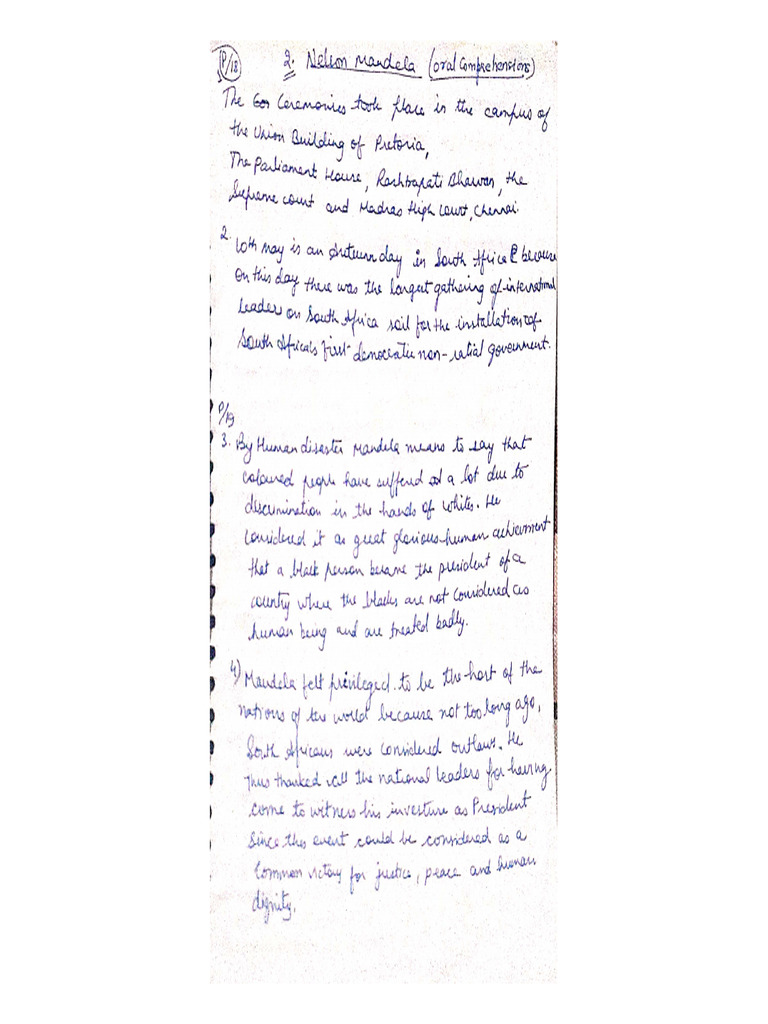 P/18
2. Nelson Mandela (oral Comprehensions)
The Ceremonies took place in the campus of
the Union Building of Pretoria,
The Parliament House, Rashtrapati Bhawan, the
Supreme court and Madras High Court, Chennai.
2.
10th may is an day in South Africa because
on this day there was the largest gathering of international
leader on South Africa soil for the installation of
South Africa's first democratic non-ratial government.
P/19
3. By Human disaster Mandela means to say that
coloured people have suffered a lot due to
discrimination in the hands of whites. He
considered it as great glorious human achievement
that a black person became the president of a
country where the blacks are not considered as
human being and are treated badly.
4) Mandela felt privileged to be the host of the
nations of the world because not too long ago,
South Africans were considered outlaws. He
thus thanked all the national leaders for having
come to witness his investure as President
since this event could be considered as a
common victory for justice, peace and human
dignity.